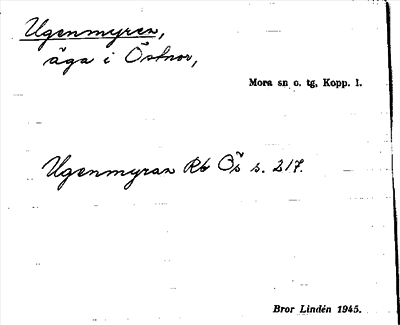 Ugenmyren,
äga i Östnor,
Mora sn o. tg, Kopp. l.
Ugenmyran Rb Ös s. 217.
Bror Lindén 1945.